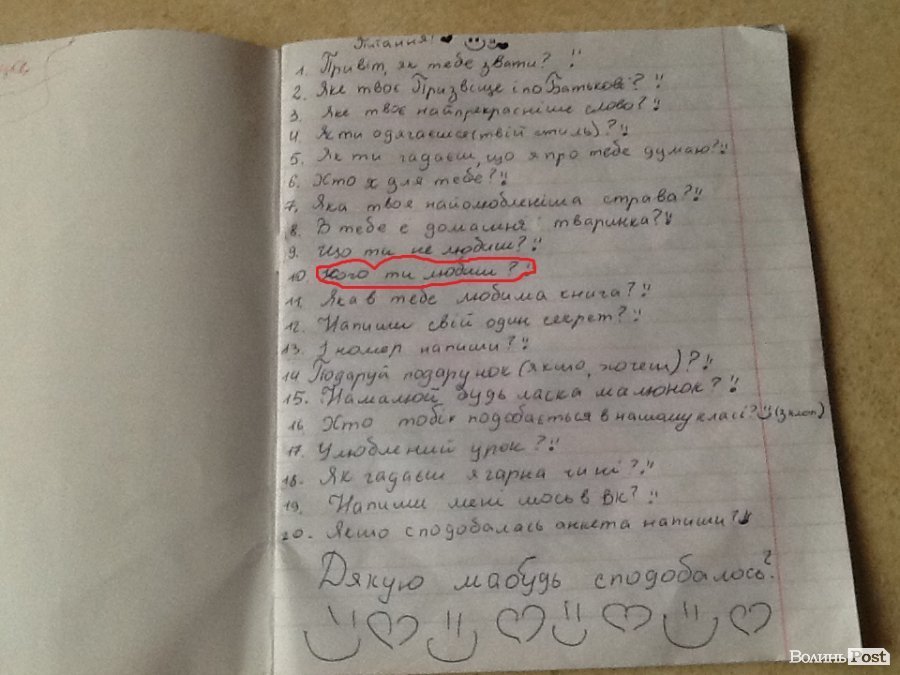 Питання!
1. Привіт, як тебе звати?
2. Яке твоє Прізвіще і по Батькові?
3. Яке твоє найпрекрасніше слово?
4. Як ти одягаєшся (твій стиль)?
5. Як ти гадаєш, що я про тебе думаю?
6. Хто я для тебе?
7. Яка твоя найолюбленіша страва?
8. В тебе є домашня тваринка?
9. Що ти не любиш?
10. Кого ти любиш?
11. Яка в тебе любима книга?
12. Напиши свій один секрет?
13. І номер напиши?
14. Подаруй подарунок (якшо, хочеш)?
15. Намалюй будь ласка малюнок?
16. Хто тобі подобається в нашому класі? (з хлоп)
17. Улюблений урок?
18. Як гадаєш я гарна чи ні?
19. Напиши мені шось в ВК?
20. Якшо сподобалась анкета напиши?
Дякую мабудь сподобалось?
ВолиньPost